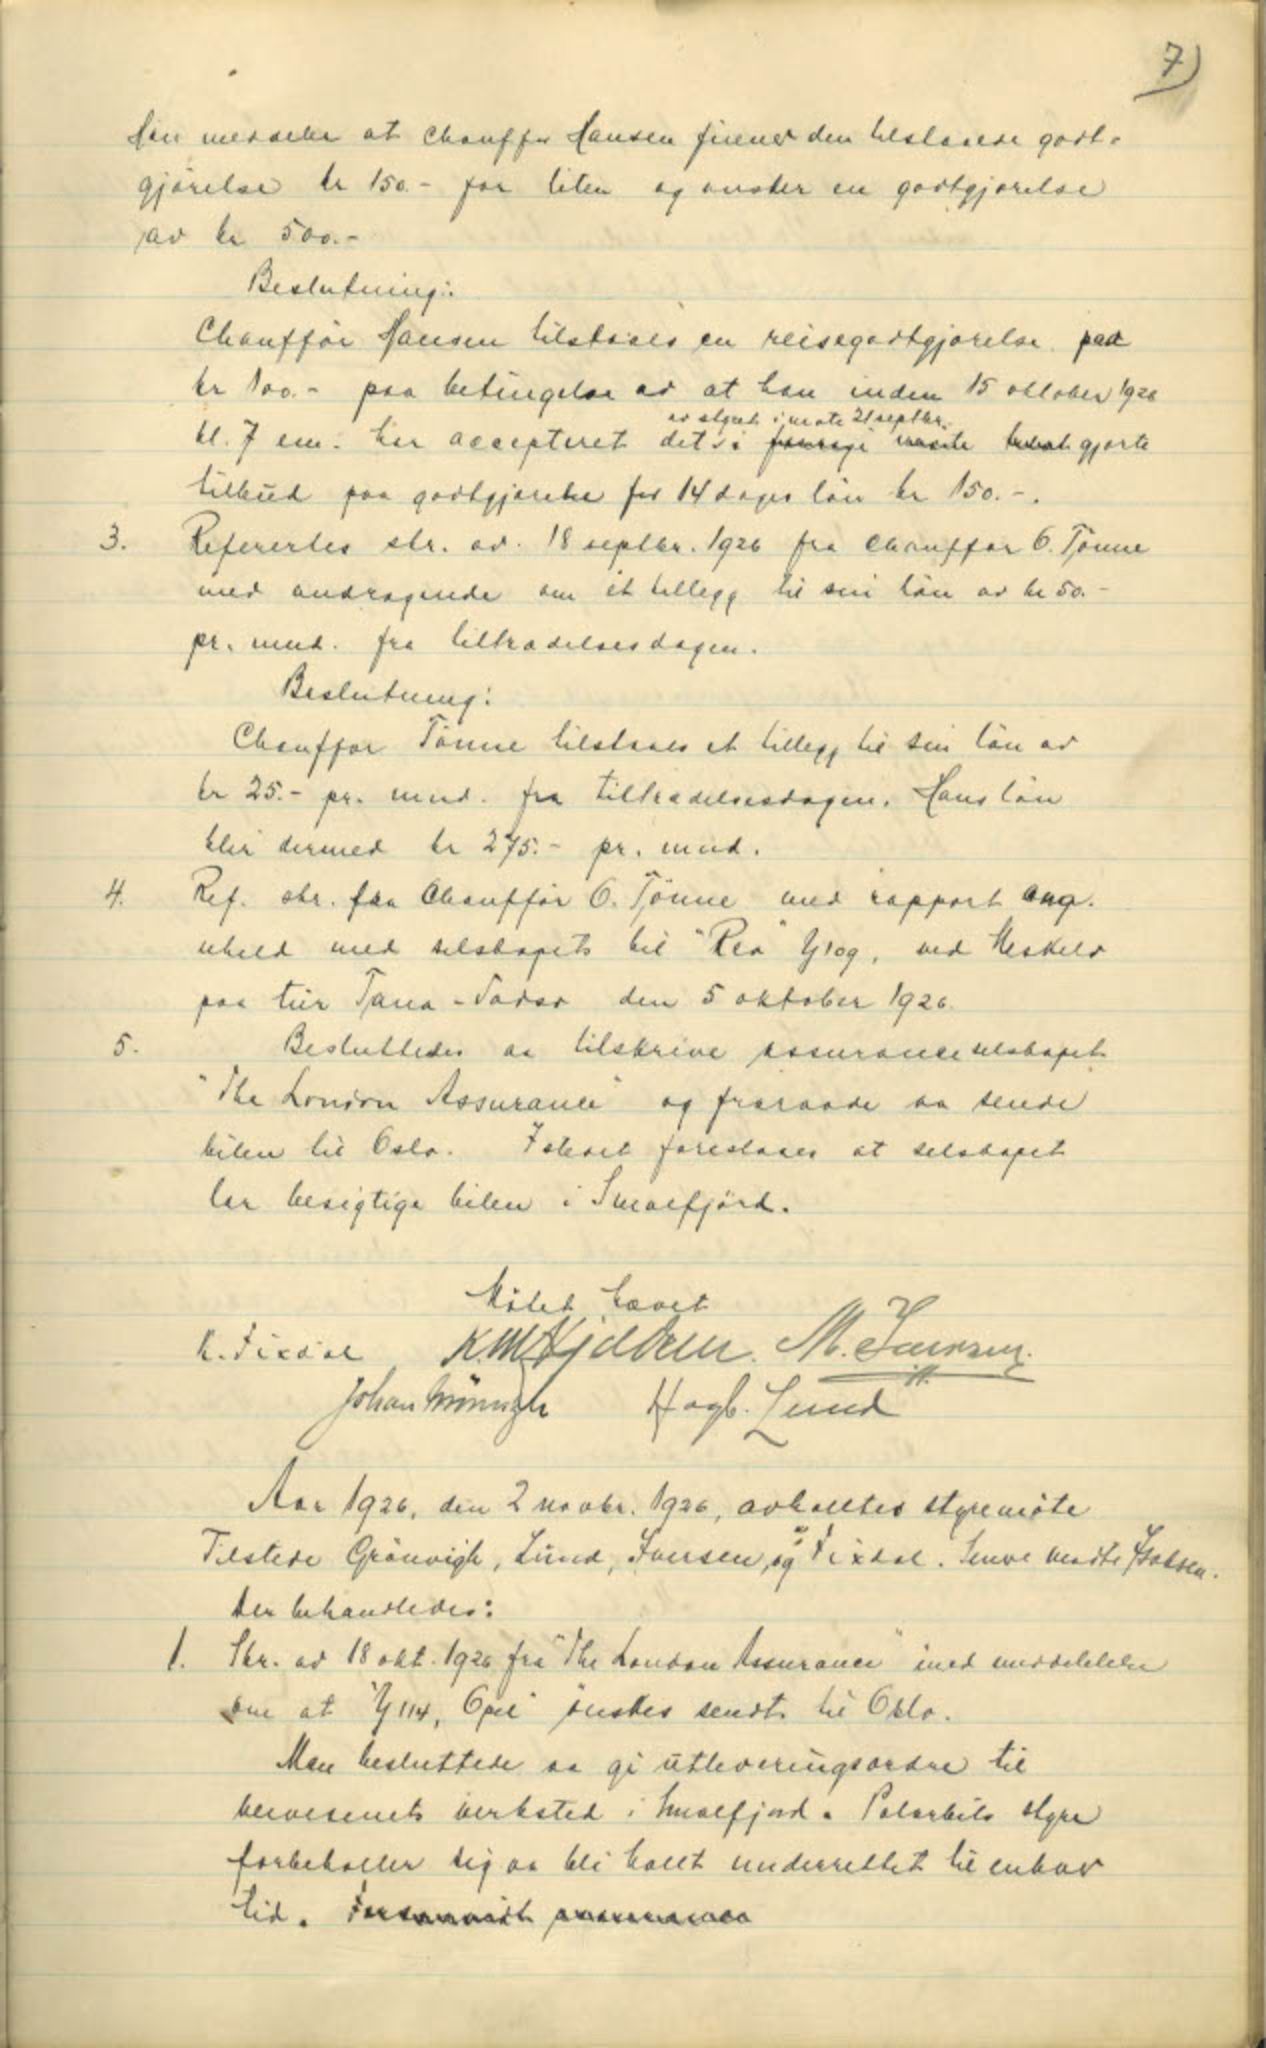 7)
Han meddeler at chauffør Hansen finner den tilstaaede godt-
gjørelse kr 150.- for liten og ønsker en godtgjørelse
av kr 500.-
Beslutning:
Chauffør Hansen tilstaaes en reisegodtgjørelse paa
kr 100.- paa betingelse av at han inden 15 oktober 1926
av styret i møte 21 septbr.
kl. 7 em. har accepteret det i forrige møte gjorte
tilbud paa godtgjørelse for 14 dages løn kr 150.-.
3. Referertes skr. av. 18 septbr. 1926 fra chauffør O. Tjönne
med andragende om et tillegg til sin løn av kr 50.-
pr. mnd. fra tiltrædelsesdagen.
Beslutning:
Chauffør Tönne tilstaaes et tillegg til sin løn av
kr 25.- pr. mnd. fra tiltrædelsesdagen. Hans løn
blir dermed kr 275.- pr. mnd.
4. Ref. skr. fra Chauffør O. Tjönne med rapport ang.
uheld med selskapets bil "Reo" Y109, ved
paa tur Tana - Vadsø den 5 oktober 1926.
5. Besluttedes aa tilskrive assuranceselskapet
"The London Assurance" og fraraade aa sende
bilen til Oslo. Istedet foreslaaes at selskapet
lar besigtige bilen i Smalfjörd.
Mötet hævet
K. Fixdal M. Iversen.
Johan Grönvigh Hagb. Lund
Aar 1926, den 2 novbr. 1926, avholdtes styremøte
Tilstede Grönvigh, Lund, Iversen, og Fixdal.
Der behandledes:
1. Skr. av 18 okt. 1926 fra "The London Assurance" med meddelelse
om at "Y114, Opel" önskes sendt til Oslo.
Man besluttede aa gi utleveringsordre til
veivesenets verksted i Smalfjord. Polarbils styre
forbeholder sig aa bli holdt underrettet til enhver
tid.